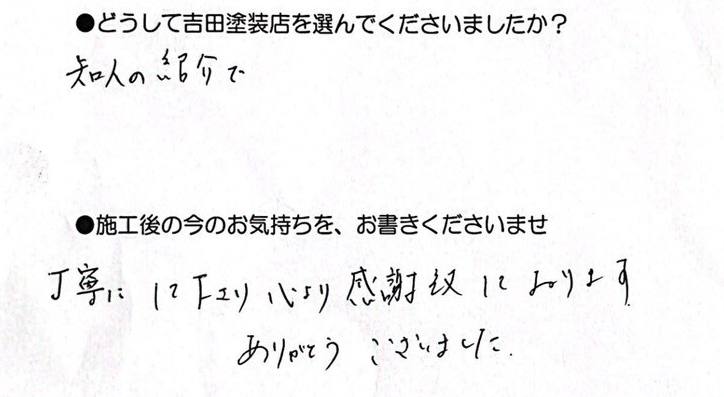 ●どうして吉田塗装店を選んでくださいましたか？
知人の紹介で
●施工後の今のお気持ちを、お書きくださいませ
丁寧にして下さり心より感謝致しております
ありがとうございました.